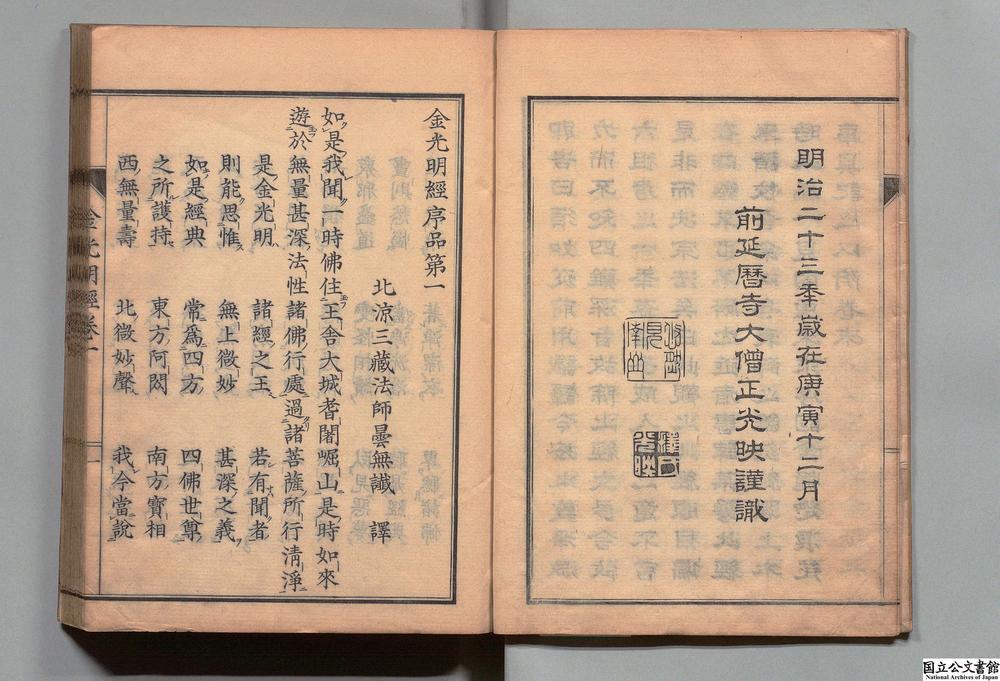 明治二十三年歳在庚寅十二月
前延曆寺大僧正光映謹識
金光明經序品第一
北涼三藏法師曇無讖 譯
如是我聞一時佛住王舍大城耆闍崛山是時如來
遊於無量甚深法性諸佛行處過諸菩薩所行清淨
是金光明 諸經之王 若有聞者
則能思惟 無上微妙 甚深之義
如是經典 常爲四方 四佛世尊
之所護持 東方阿閦 南方寶相
西無量壽 北微妙聲 我今當說
金光明經卷一
国立公文書館
National Archives of Japan